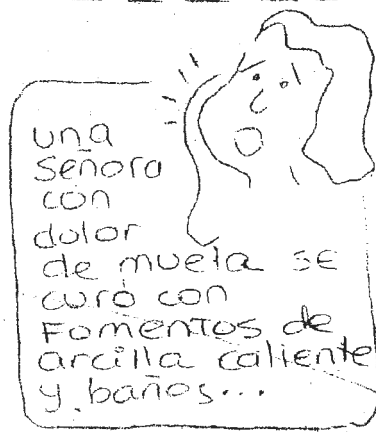 una
señora
con
dolor
de muela se
curó con
Fomentos de
arcilla caliente
y baños...